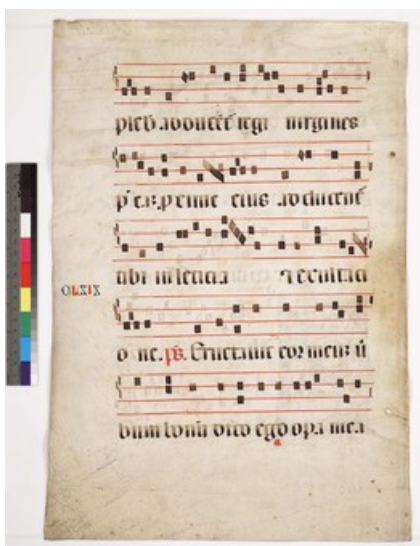 adducēt regi uirgines
p̄ eā. proxime eius adducent᷑
tibi in leticia et exultati
one. ps. Eructauit cor meuz ū
bum bonū dico ego opa mea